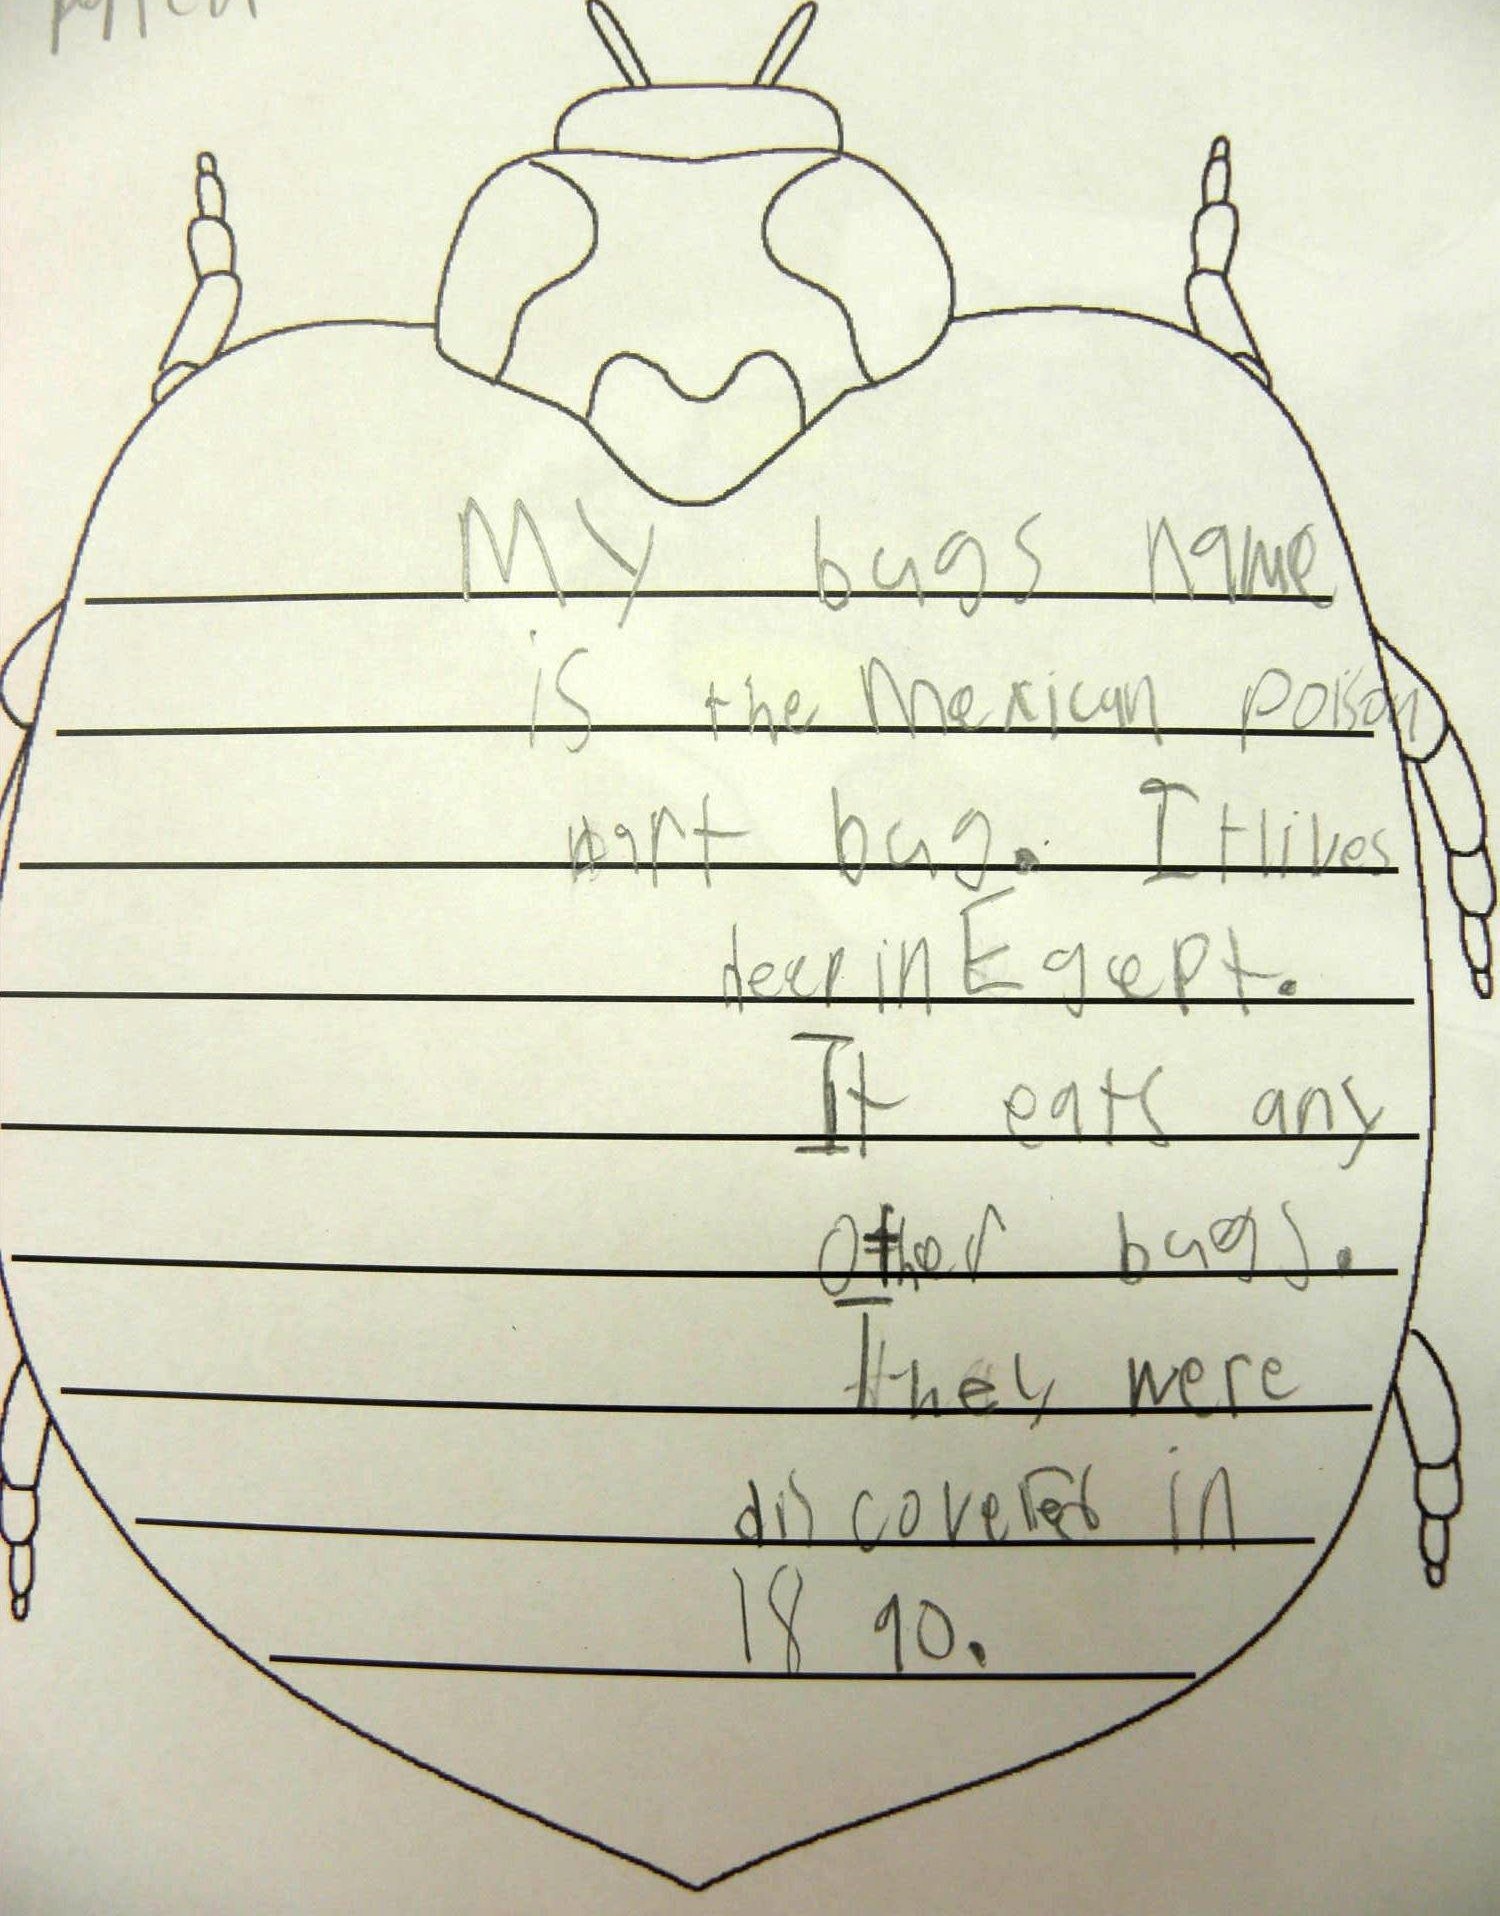 My bugs name
is the Mexican poison
wart bug. It lives
deep in Egept.
It eats any
other bugs.
They were
discovered in
1890.